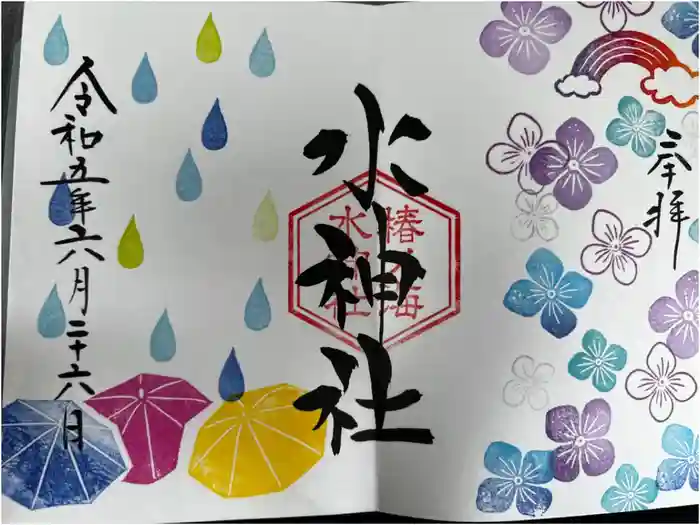 奉拝
水神社
椿の海
水神社
令和五年六月二十六日